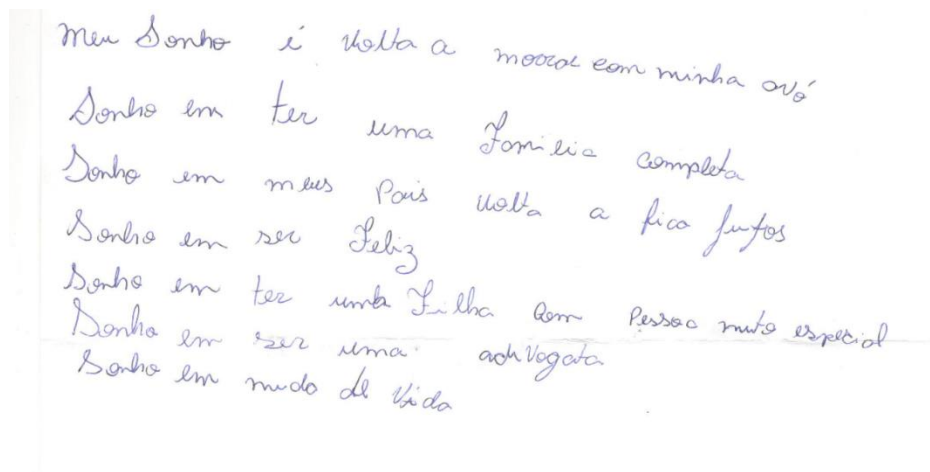 Meu Sonho é volta a morar com minha avó
Sonho em ter uma Familia completa
Sonho em meus Pais volta a fica juntos
Sonho em ser Feliz
Sonho em ter uma Filha com Pessoa muto especial
Sonho em ser uma advogata
Sonho em muda de vida